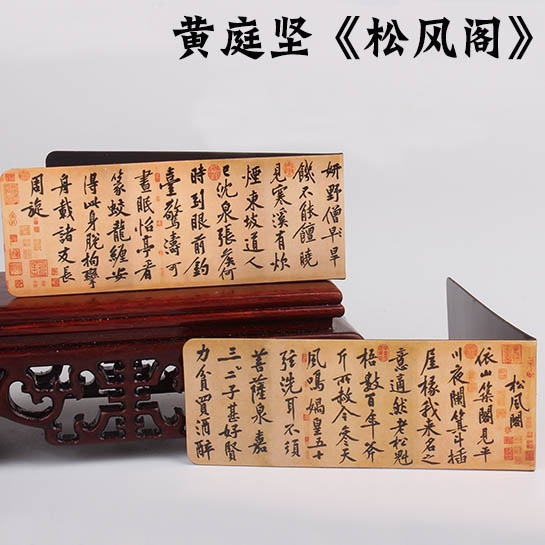 黄庭坚《松风阁》
妍野僧旱旱
饑不能饘曉
見寒溪有炊
煙東坡道人
已沈泉張侯何
時到眼前釣
臺驚濤可
晝眠怡亭看
篆蛟龍纏安
得此身脫拘攣
舟載諸友長
周旋
松風閣
依山築閣見平
川夜闌箕斗插
屋椽我來名之
意適然老松魁
梧數百年斧
斤所赦今參天
風鳴媧皇五十
絃洗耳不須
菩薩泉嘉
三二子甚好賢
力貧買酒醉